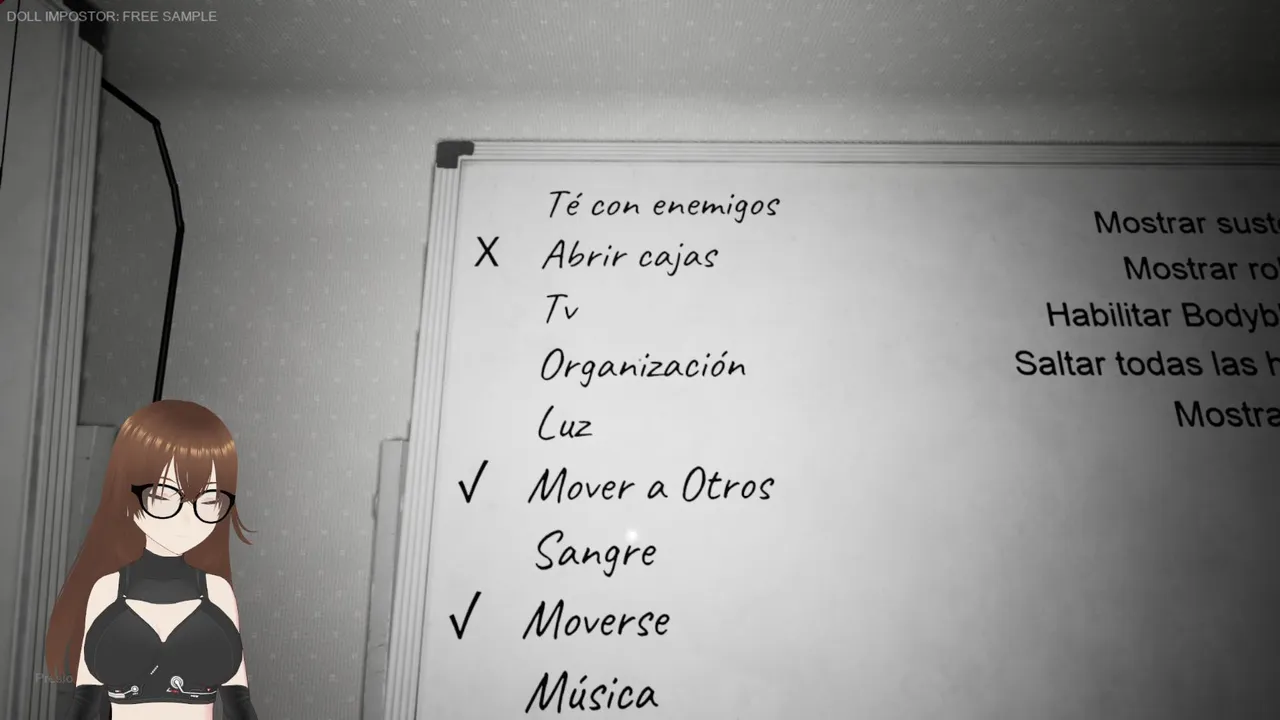 DOLL IMPOSTOR: FREE SAMPLE
Té con enemigos
X Abrir cajas
Tv
Organización
Luz
√ Mover a Otros
Sangre
√ Moverse
Música
Mostrar
Mostrar
Habilitar
Saltar todas las